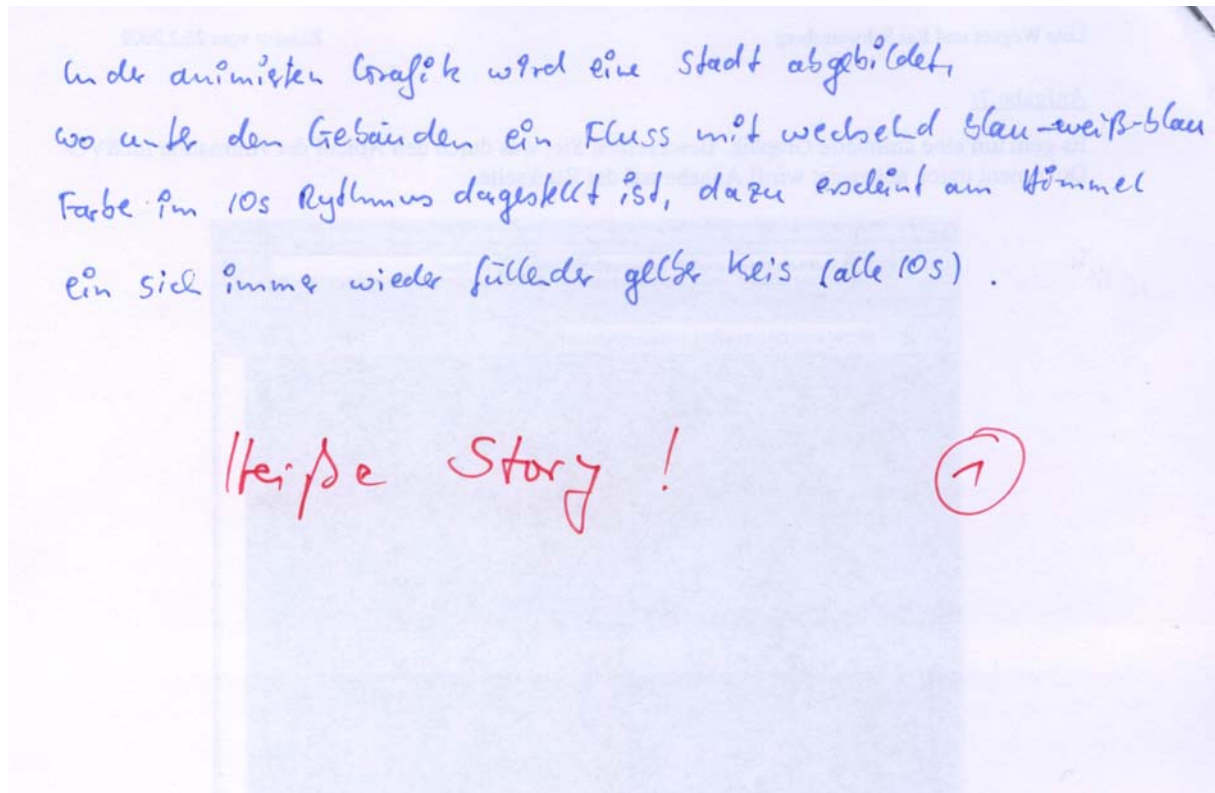 In der animierten Grafik wird eine Stadt abgebildet,
wo unter den Gebäuden ein Fluss mit wechselnd blau-weiß-blau
Farbe im 10s Rythmus dargestellt ist, dazu erscheint am Himmel
ein sich immer wieder füllender gelber Keis (alle 10s).
Heiße Story! 1